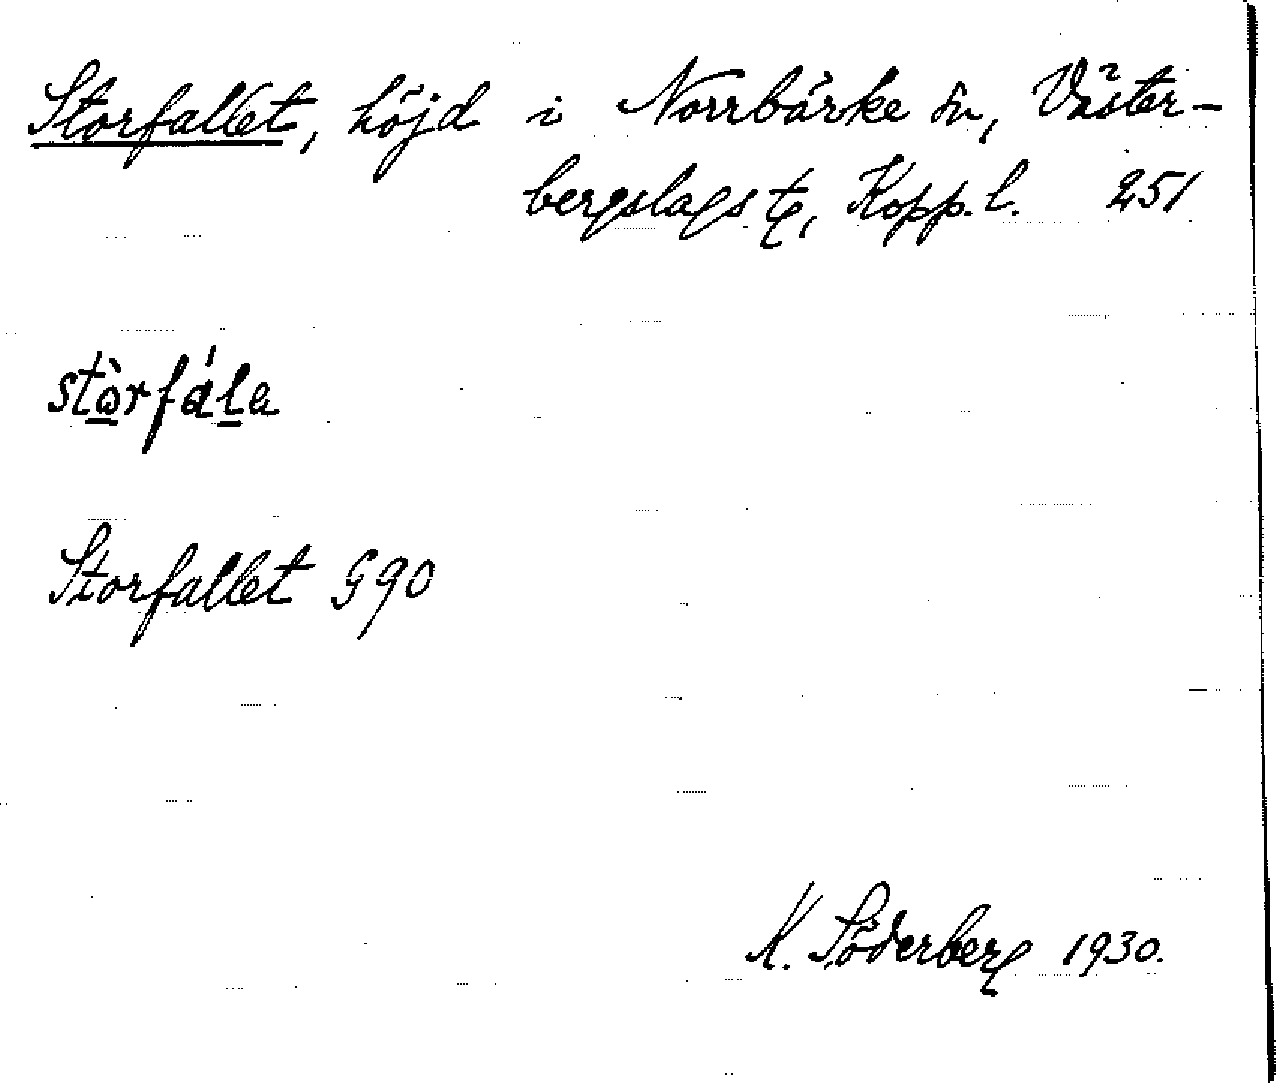 Storfallet, höjd i Norrbärke sn, Väster-
bergslags tg, Kopp. l. 251
stòrfála
Storfallet G90
K. Söderberg 1930.